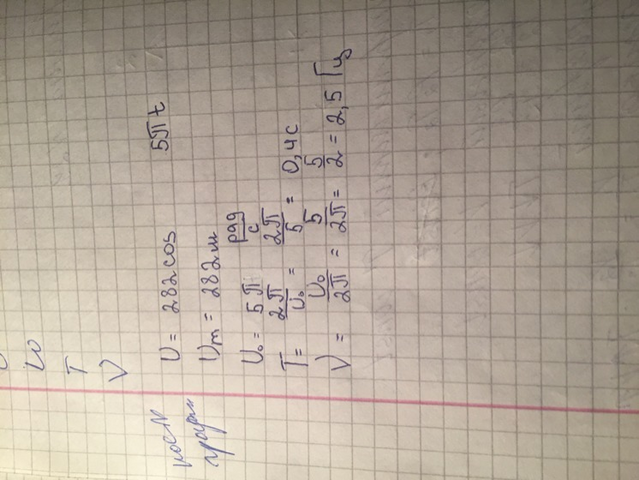 ω
T
ν
U = 282 cos 5πt
Um = 282 м
U₀ = 5π рад/с
T = 2π/U₀ = 2π/5 = 0,4 с
ν = U₀/2π = 5/2π = 5/2 = 2,5 Гц